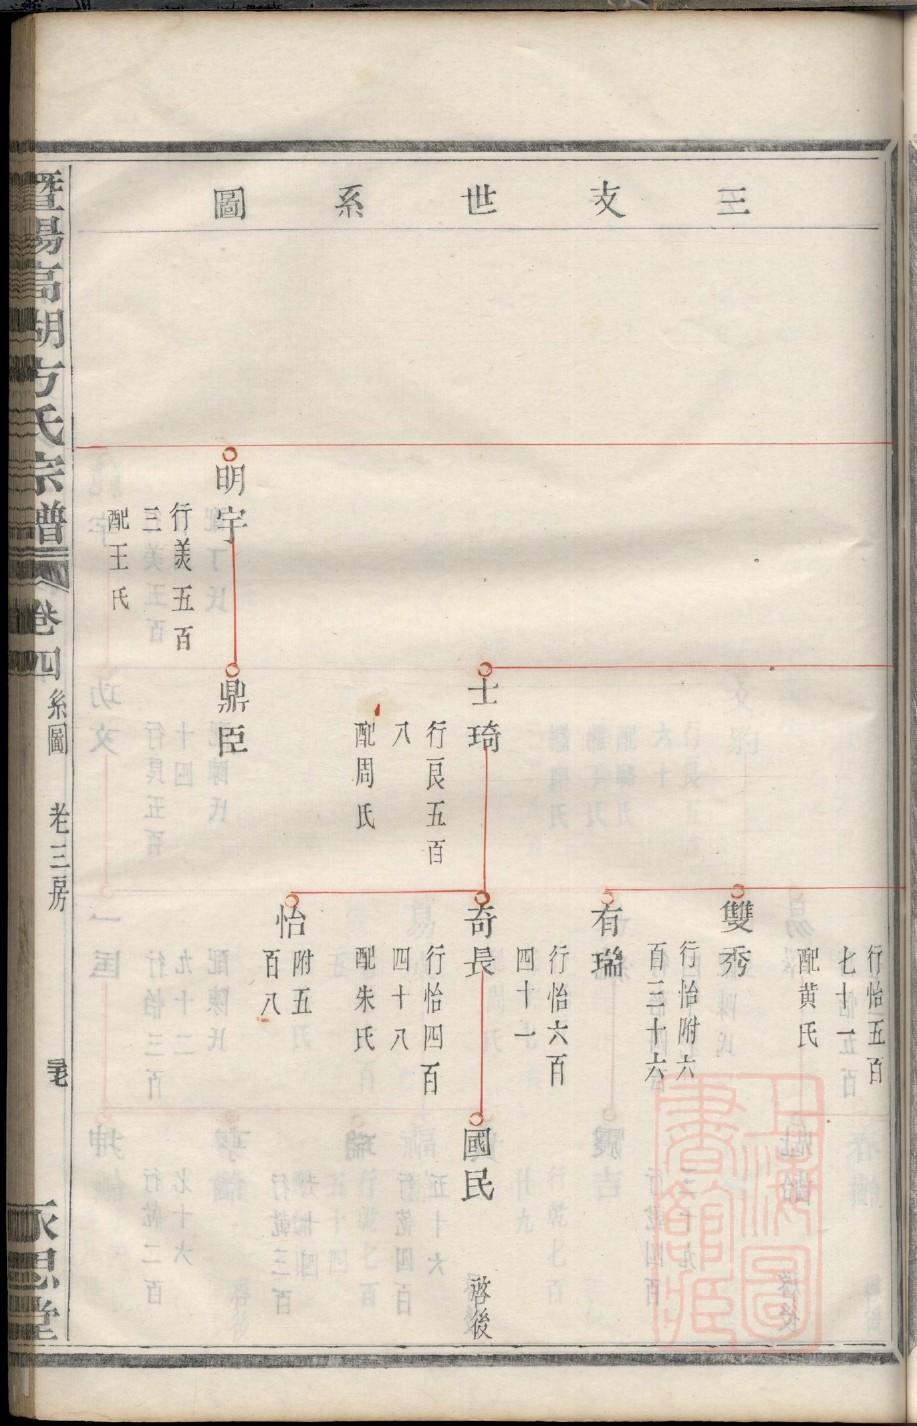 三支世系圖
行怡五百
七十一
配黄氏
雙秀
行怡附六
百三十六
有瑞
行怡六百
四十一
士琦
行良五百
八
配周氏
奇長
行怡四百
四十八
配朱氏
國民
啓後
怡
附五
百八
明宇
行美五百
三
配王氏
鼎臣
暨陽高湖方氏宗譜
卷四
系圖
老三房
永思堂